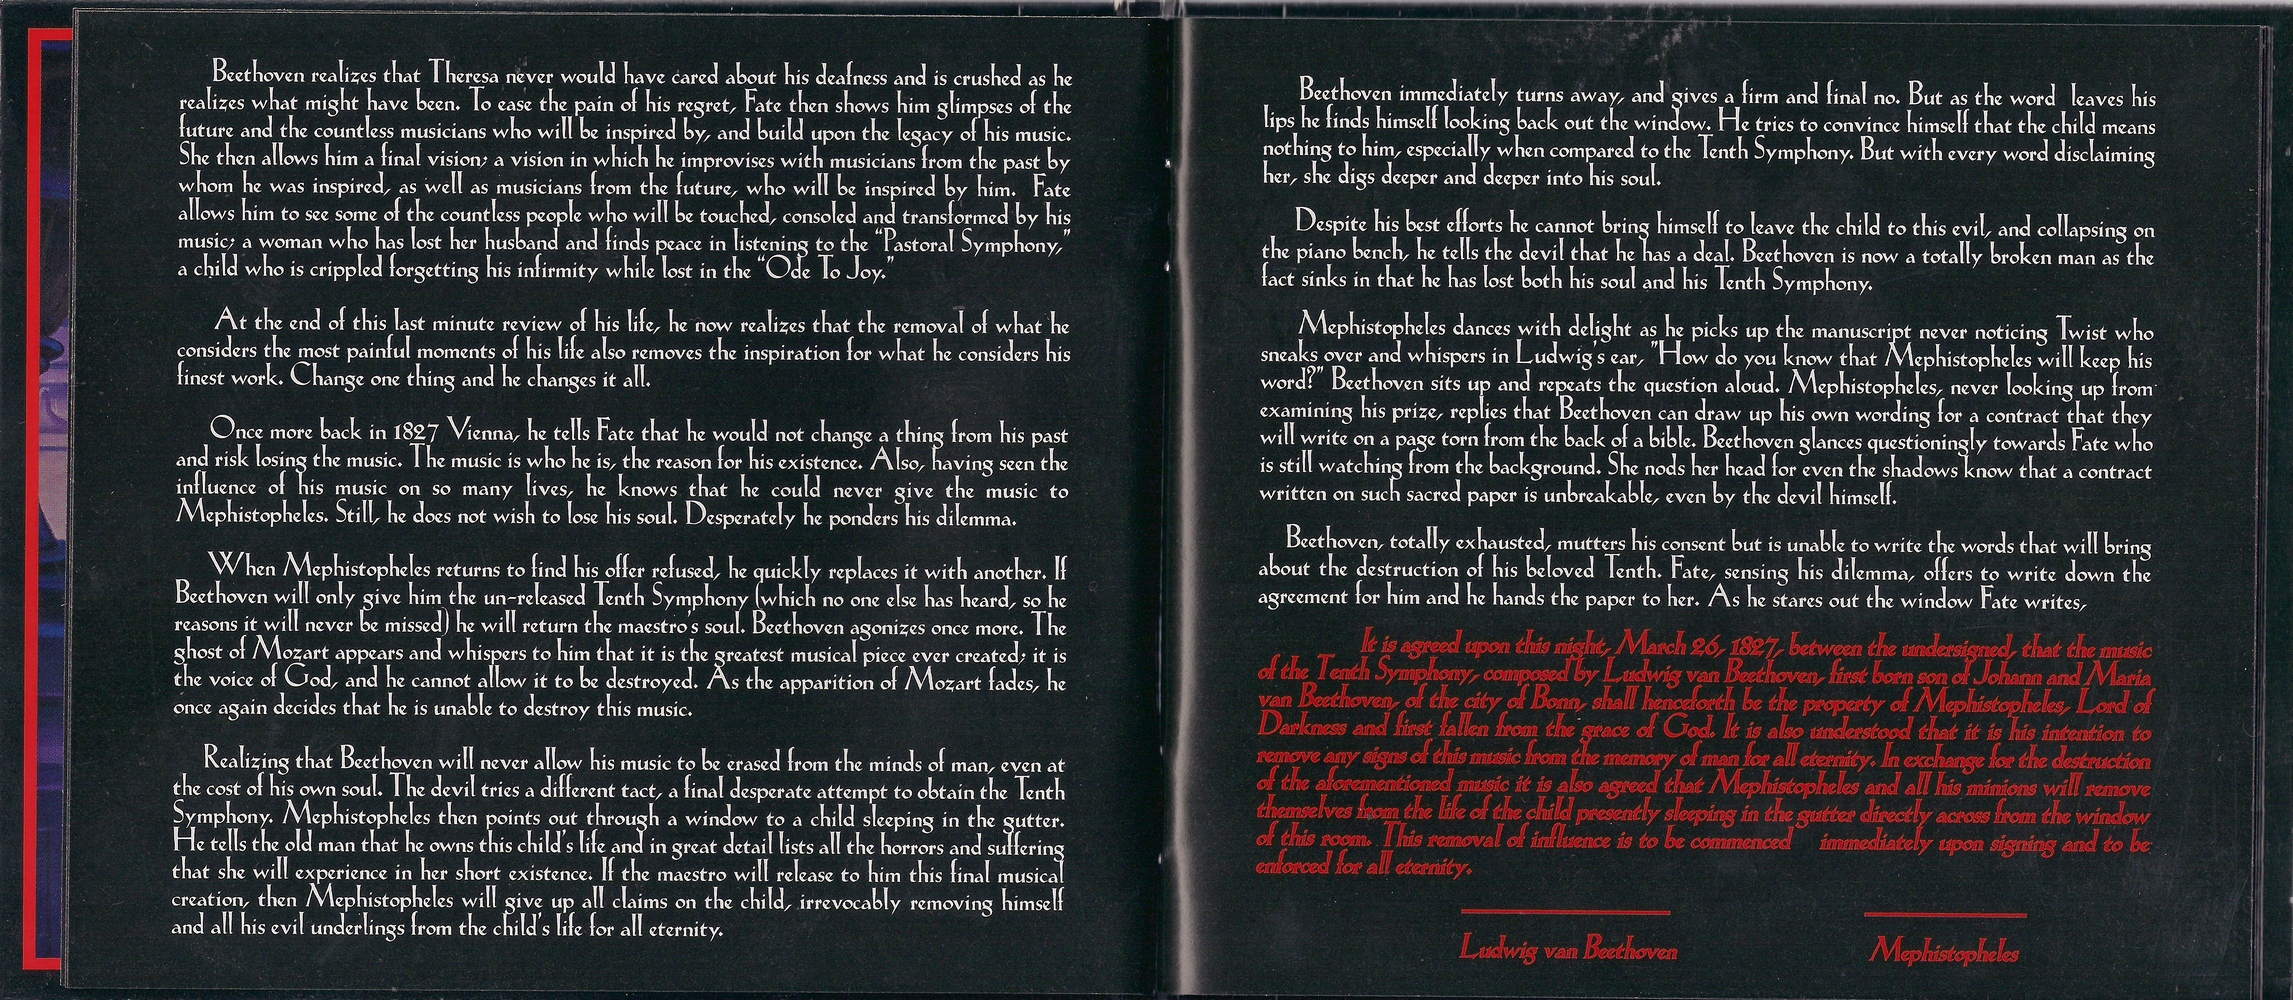 Beethoven realizes that Theresa never would have cared about his deafness and is crushed as he
realizes what might have been. To ease the pain of his regret, Fate then shows him glimpses of the
future and the countless musicians who will be inspired by, and build upon the legacy of his music.
She then allows him a final vision; a vision in which he improvises with musicians from the past by
whom he was inspired, as well as musicians from the future, who will be inspired by him. Fate
allows him to see some of the countless people who will be touched, consoled and transformed by his
music; a woman who has lost her husband and finds peace in listening to the “Pastoral Symphony,”
a child who is crippled forgetting his infirmity while lost in the “Ode To Joy.”
At the end of this last minute review of his life, he now realizes that the removal of what he
considers the most painful moments of his life also removes the inspiration for what he considers his
finest work. Change one thing and he changes it all.
Once more back in 1827 Vienna, he tells Fate that he would not change a thing from his past
and risk losing the music. The music is who he is, the reason for his existence. Also, having seen the
influence of his music on so many lives, he knows that he could never give the music to
Mephistopheles. Still, he does not wish to lose his soul. Desperately he ponders his dilemma.
When Mephistopheles returns to find his offer refused, he quickly replaces it with another. If
Beethoven will only give him the un-released Tenth Symphony (which no one else has heard, so he
reasons it will never be missed) he will return the maestro's soul. Beethoven agonizes once more. The
ghost of Mozart appears and whispers to him that it is the greatest musical piece ever created; it is
the voice of God, and he cannot allow it to be destroyed. As the apparition of Mozart fades, he
once again decides that he is unable to destroy this music.
Realizing that Beethoven will never allow his music to be erased from the minds of man, even at
the cost of his own soul. The devil tries a different tact, a final desperate attempt to obtain the Tenth
Symphony. Mephistopheles then points out through a window to a child sleeping in the gutter.
He tells the old man that he owns this child's life and in great detail lists all the horrors and suffering
that she will experience in her short existence. If the maestro will release to him this final musical
creation, then Mephistopheles will give up all claims on the child, irrevocably removing himself
and all his evil underlings from the child's life for all eternity.
Beethoven immediately turns away, and gives a firm and final no. But as the word leaves his
lips he finds himself looking back out the window. He tries to convince himself that the child means
nothing to him, especially when compared to the Tenth Symphony. But with every word disclaiming
her, she digs deeper and deeper into his soul.
Despite his best efforts he cannot bring himself to leave the child to this evil, and collapsing on
the piano bench, he tells the devil that he has a deal. Beethoven is now a totally broken man as the
fact sinks in that he has lost both his soul and his Tenth Symphony.
Mephistopheles dances with delight as he picks up the manuscript never noticing Twist who
sneaks over and whispers in Ludwig's ear, "How do you know that Mephistopheles will keep his
word?" Beethoven sits up and repeats the question aloud. Mephistopheles, never looking up from
examining his prize, replies that Beethoven can draw up his own wording for a contract that they
will write on a page torn from the back of a bible. Beethoven glances questioningly towards Fate who
is still watching from the background. She nods her head for even the shadows know that a contract
written on such sacred paper is unbreakable, even by the devil himself.
Beethoven, totally exhausted, mutters his consent but is unable to write the words that will bring
about the destruction of his beloved Tenth. Fate, sensing his dilemma, offers to write down the
agreement for him and he hands the paper to her. As he stares out the window Fate writes,
It is agreed upon this night, March 26, 1827, between the undersigned, that the music
of the Tenth Symphony, composed by Ludwig van Beethoven, first born son of Johann and Maria
van Beethoven, of the city of Bonn, shall henceforth be the property of Mephistopheles, Lord of
Darkness and first fallen from the grace of God. It is also understood that it is his intention to
remove any signs of this music from the memory of man for all eternity. In exchange for the destruction
of the aforementioned music it is also agreed that Mephistopheles and all his minions will remove
themselves from the life of the child presently sleeping in the gutter directly across from the window
of this room. This removal of influence is to be commenced immediately upon signing and to be
enforced for all eternity.
Ludwig van Beethoven
Mephistopheles